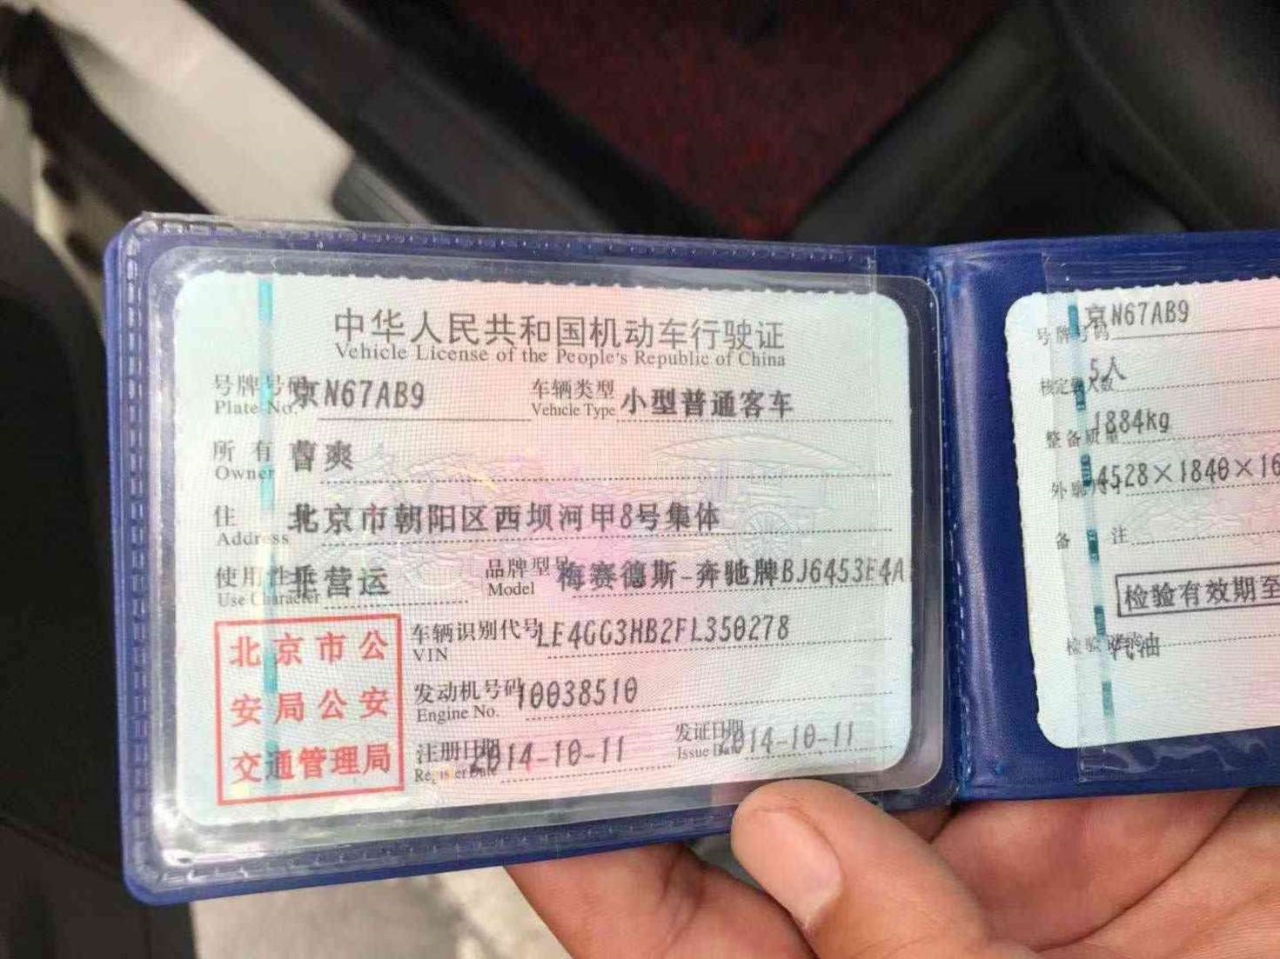 中华人民共和国机动车行驶证
Vehicle License of the People's Republic of China
号牌号码 京N67AB9 车辆类型 小型普通客车
Plate No. Vehicle Type
所有 曹爽
Owner
住 北京市朝阳区西坝河甲8号集体
Address
使用性 非营运 品牌型号 梅赛德斯-奔驰牌BJ6453E4A
Use Character Model
车辆识别代号 LE4GG3HB2FL350278
VIN
发动机号码 10038510
Engine No.
注册日期 2014-10-11 发证日期 2014-10-11
Register Date Issue Date
北京市公
安局公安
交通管理局
号牌号码 京N67AB9
核定载人数 5人
整备质量 1884kg
外廓 4528×1840×16
备 注
检验有效期至
检验 汽油